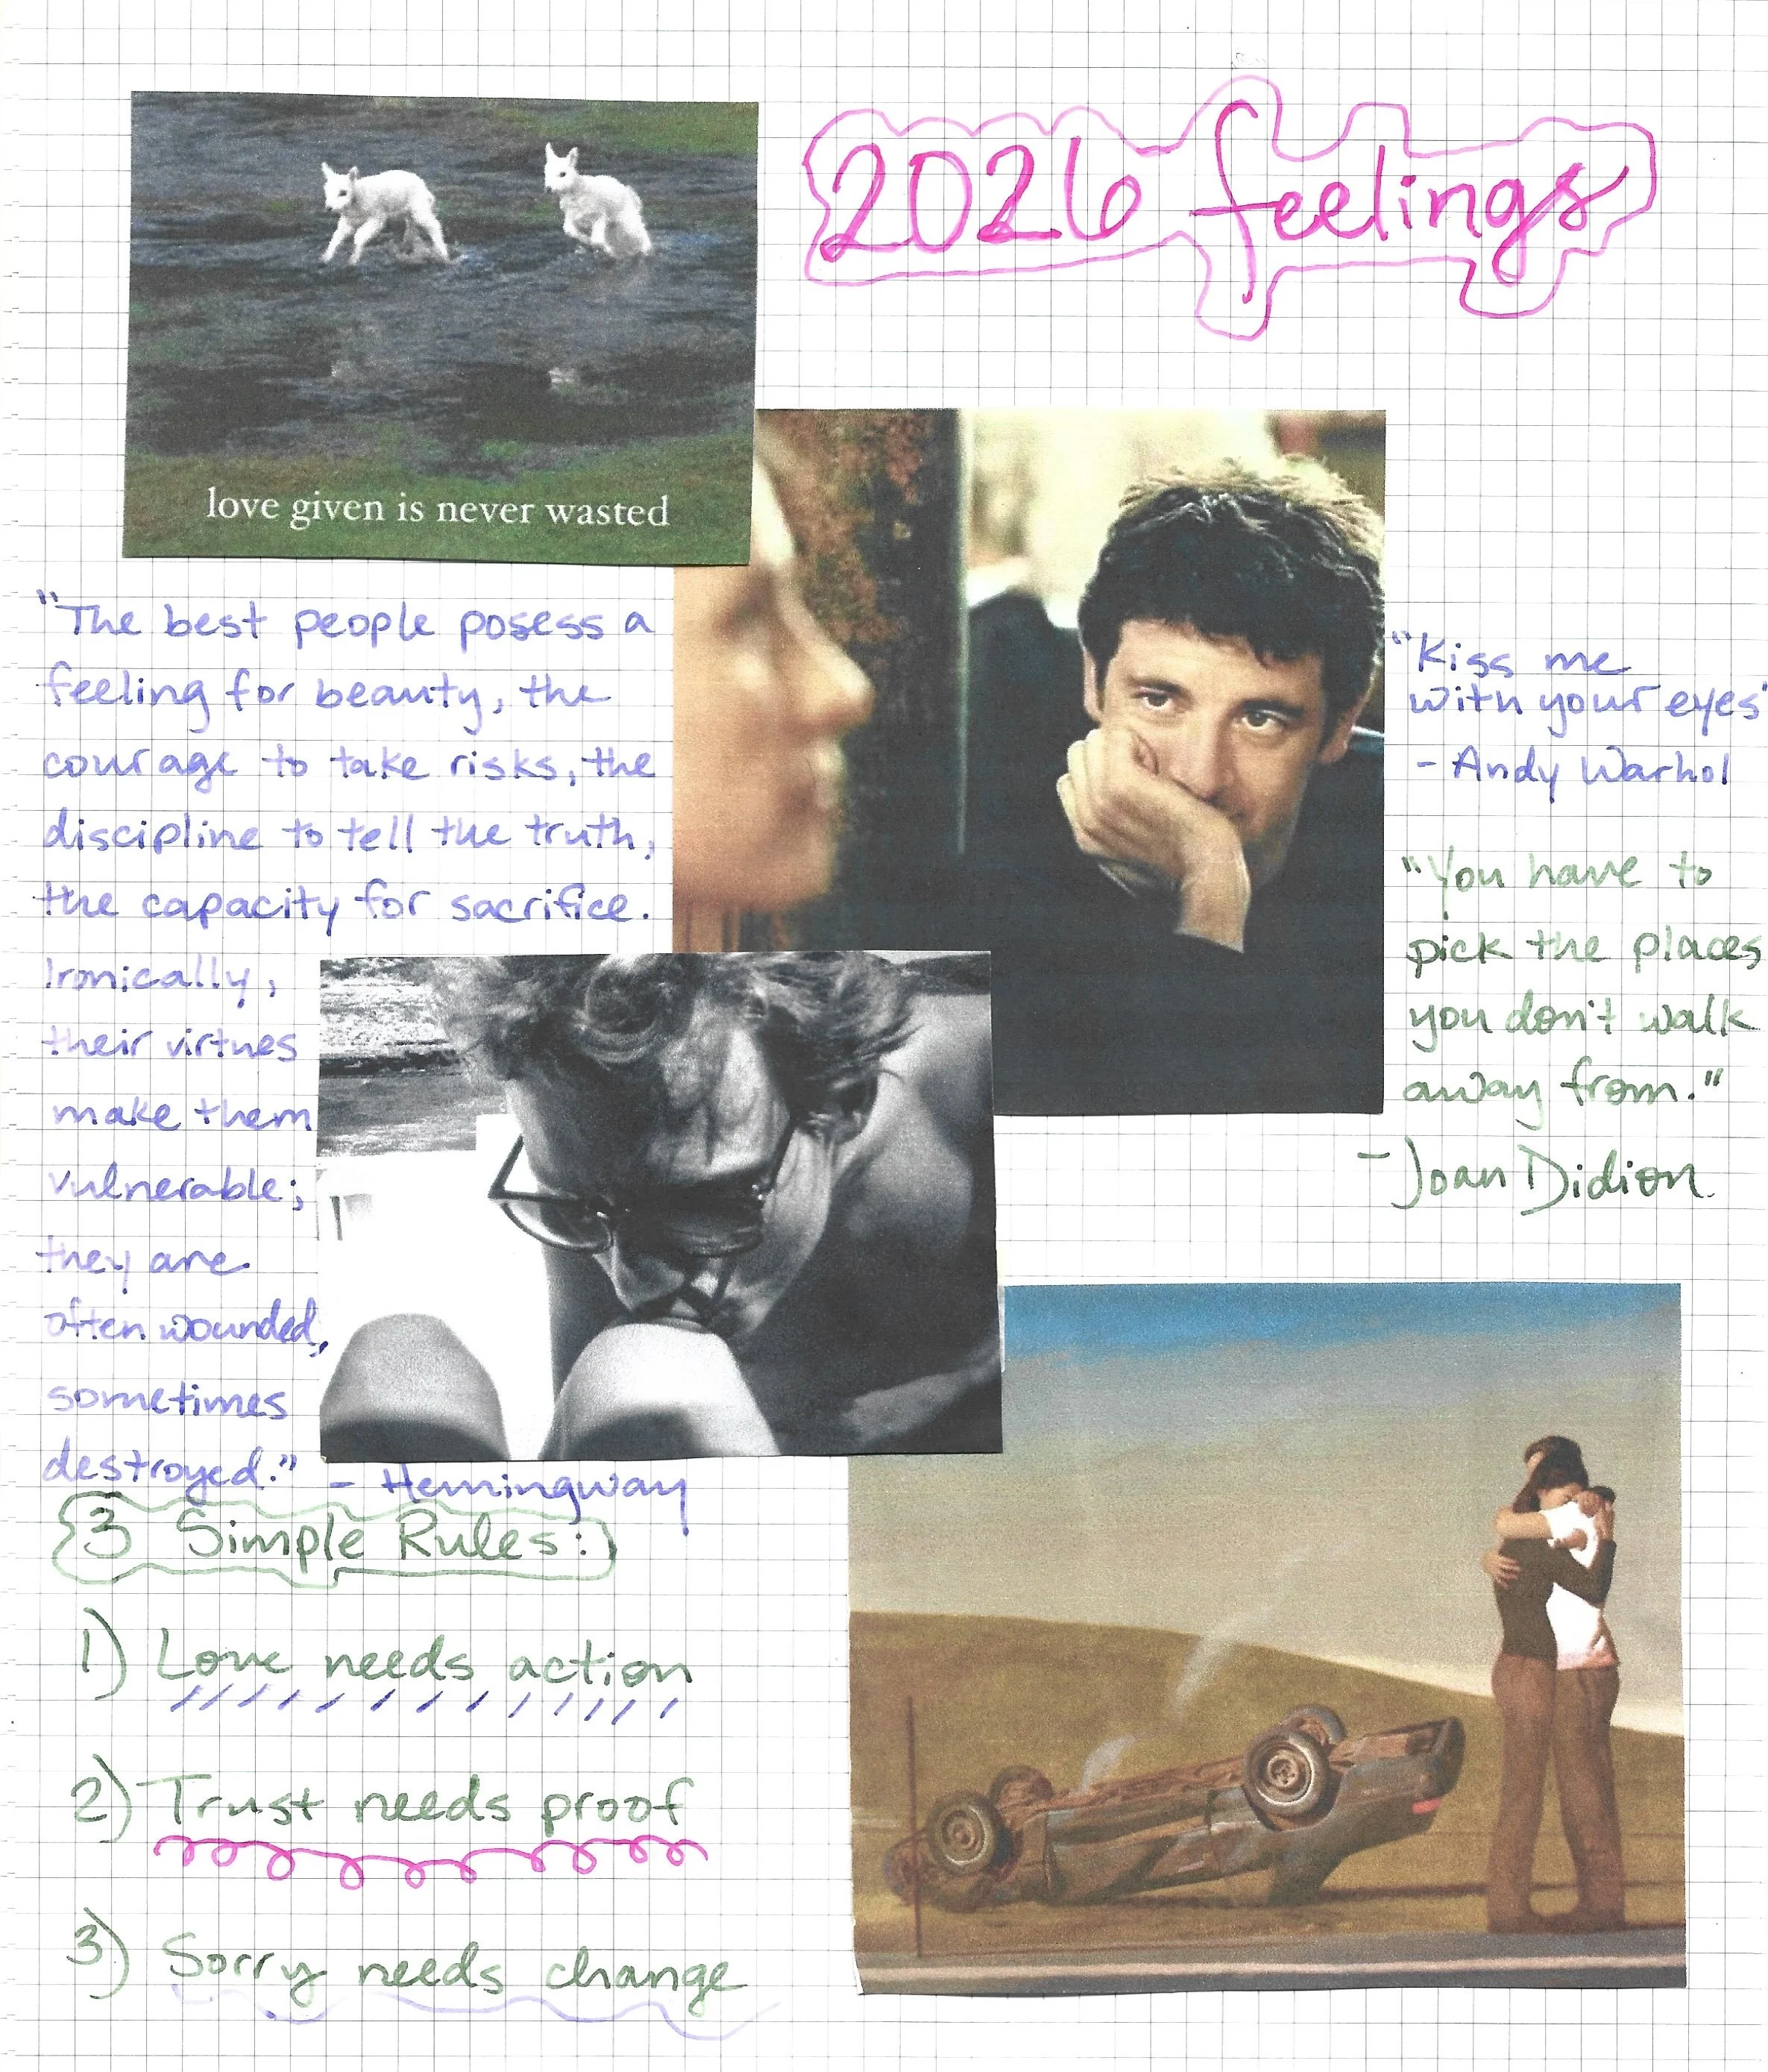 2026 feelings
love given is never wasted
"The best people posess a
feeling for beauty, the
courage to take risks, the
discipline to tell the truth,
the capacity for sacrifice.
Ironically,
their virtues
make them
vulnerable;
they are
often wounded,
sometimes
destroyed." - Hemingway
"Kiss me
with your eyes"
- Andy Warhol
"You have to
pick the places
you don't walk
away from."
- Joan Didion
3 Simple Rules:
1) Love needs action
2) Trust needs proof
3) Sorry needs change